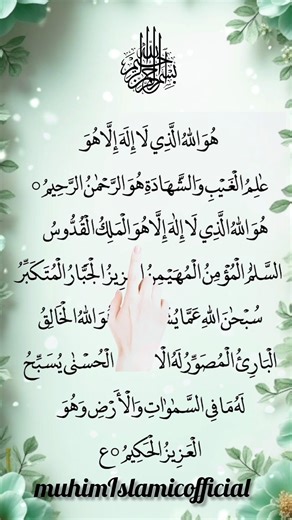 بسم الله الرحمن الرحيم
هُوَ اللهُ الَّذِي لَا إِلَهَ إِلَّا هُوَ
عٰلِمُ الْغَيْبِ وَالشَّهَادَةِ هُوَ الرَّحْمٰنُ الرَّحِيمُ ○
هُوَ اللهُ الَّذِي لَا إِلٰهَ إِلَّا هُوَ الْمَلِكُ الْقُدُّوسُ
السَّلٰمُ الْمُؤْمِنُ الْمُهَيْمِنُ الْعَزِيزُ الْجَبَّارُ الْمُتَكَبِّرُ
سُبْحٰنَ اللهِ عَمَّا هُوَ اللهُ الْخَالِقُ
الْبَارِئُ الْمُصَوِّرُ لَهُ الْحُسْنٰى يُسَبِّحُ
لَهُ مَا فِي السَّمٰوَاتِ وَالْأَرْضِ وَهُوَ
الْعَزِيزُ الْحَكِيمُ ○ ع
muhimIslamicofficial